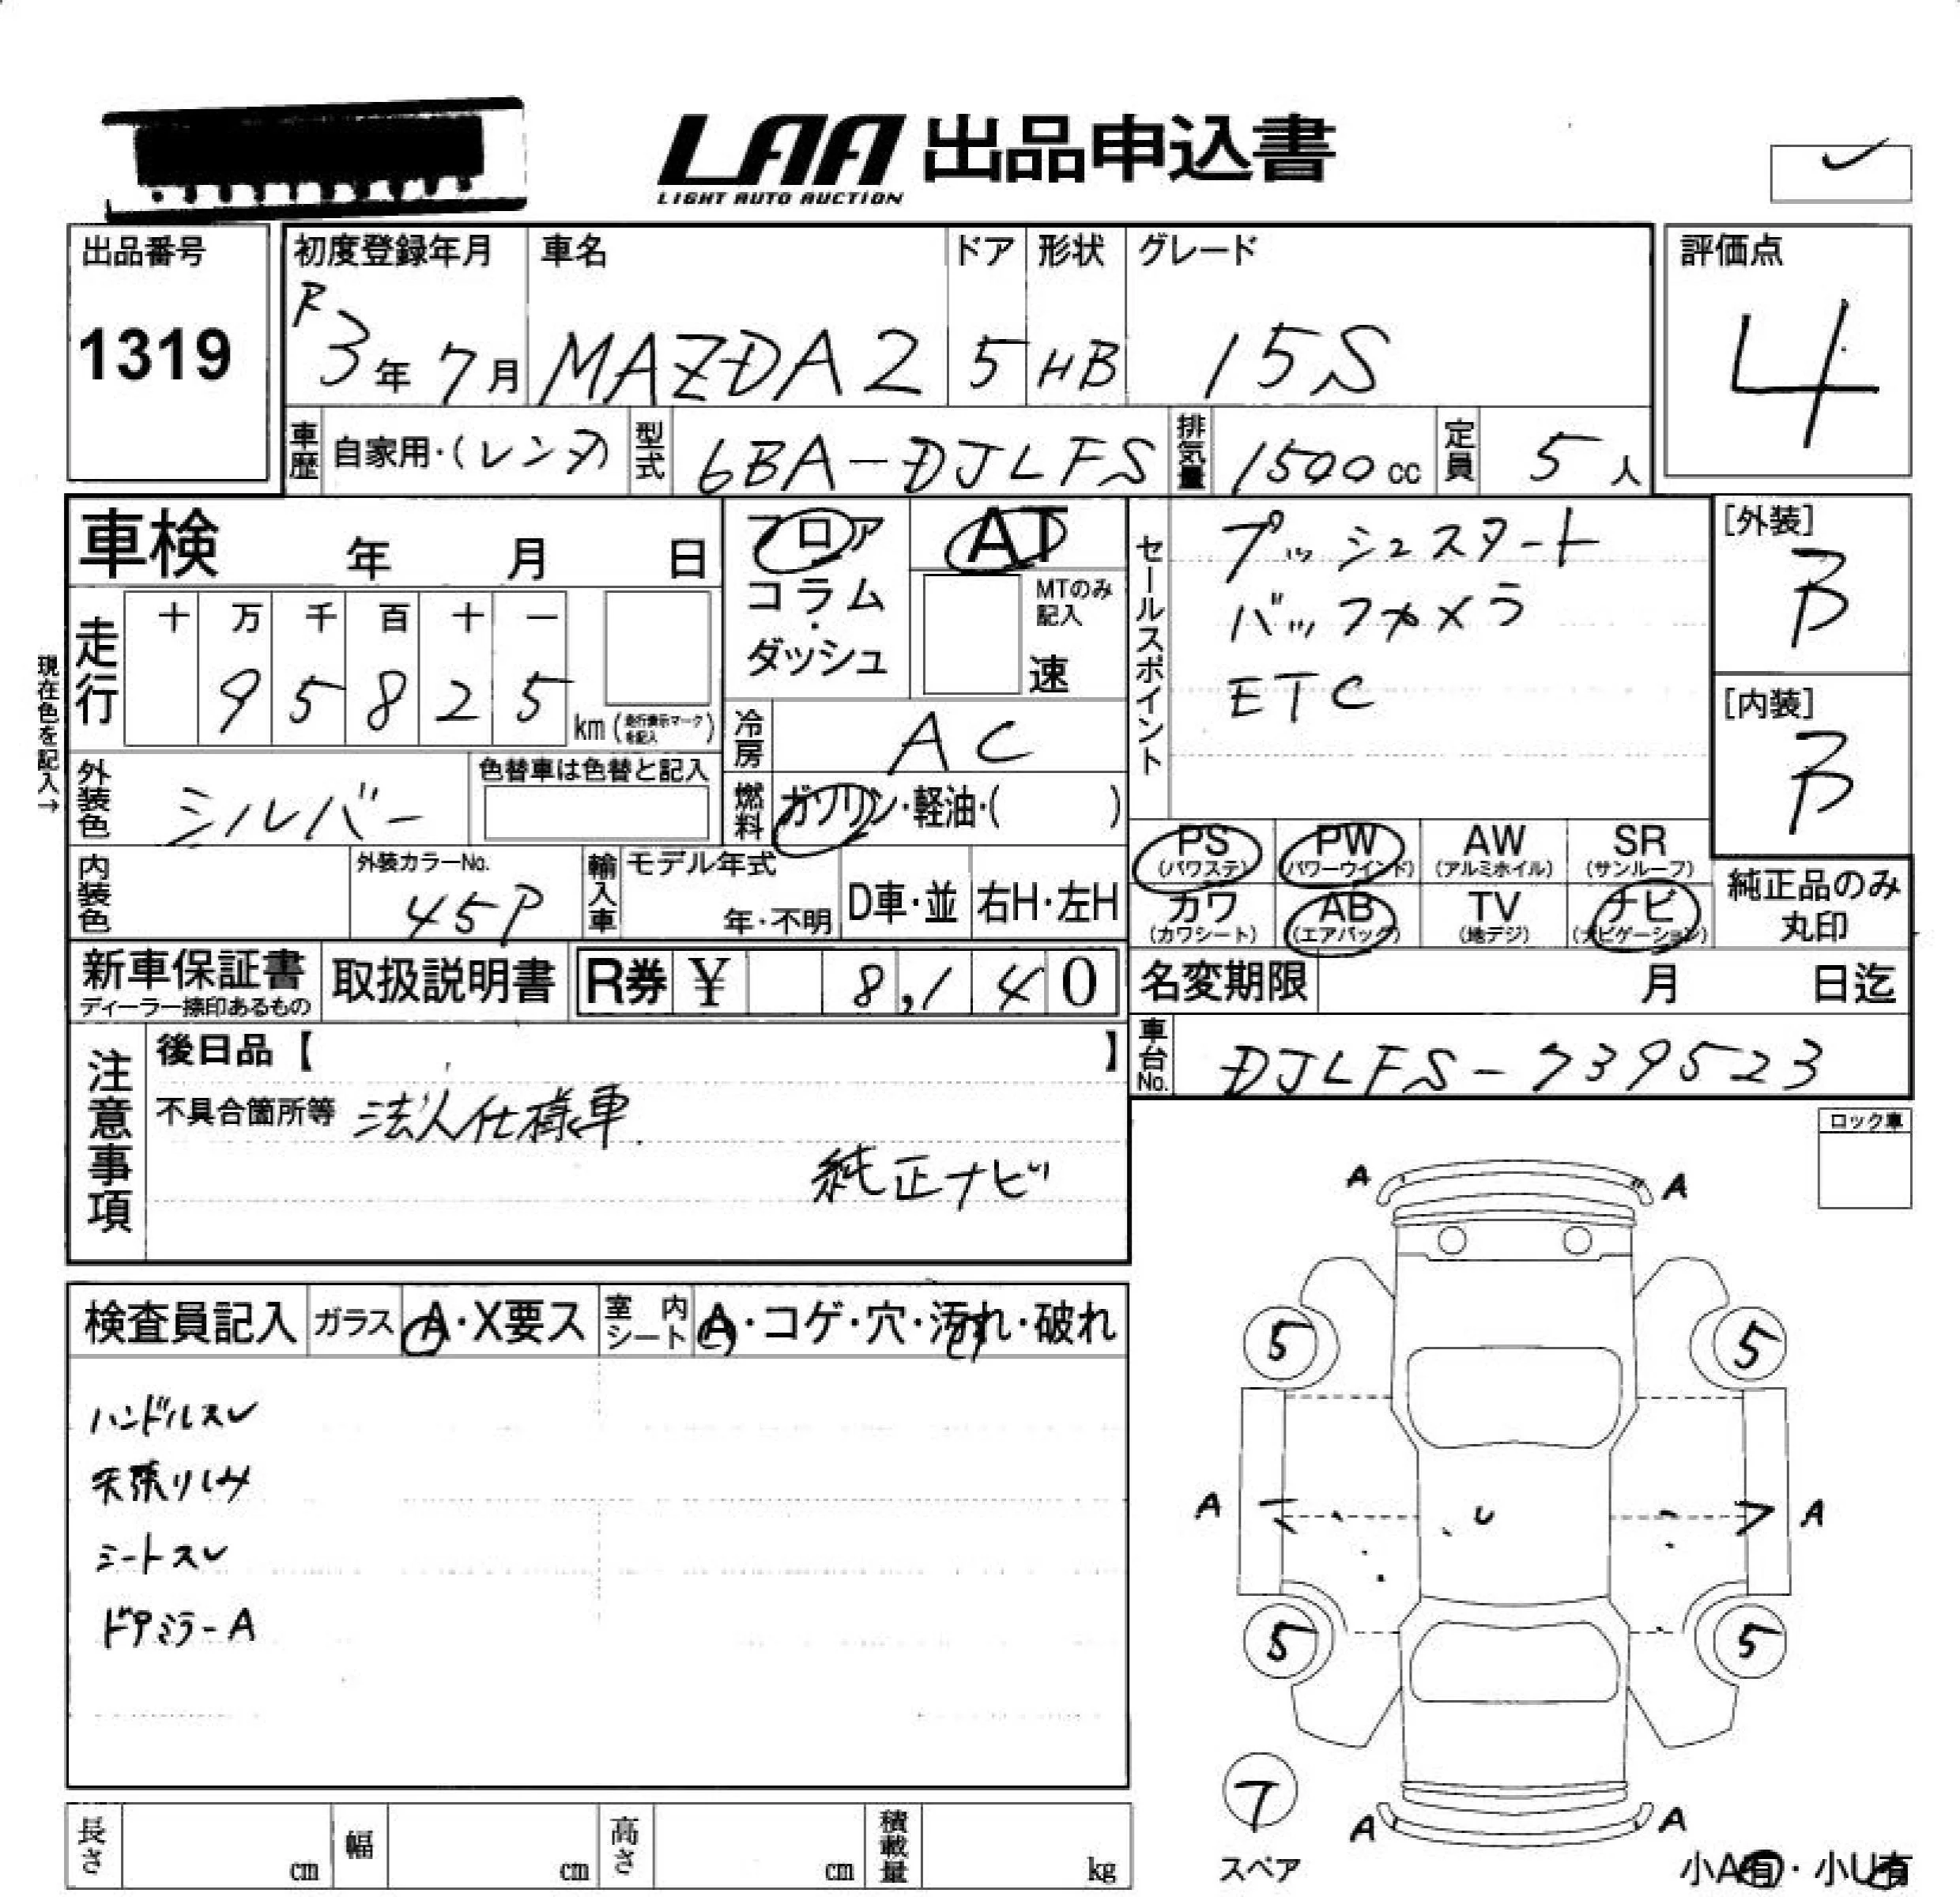 LAA 出品申込書
LIGHT AUTO AUCTION
出品番号
1319
初度登録年月 車名 ドア 形状 グレード
R3年7月 MAZDA2 5 HB 15S
評価点
4
車歴 自家用・(レンタ) 型式 6BA-DJLFS 排気量 1500cc 定員 5人
車検 年 月 日
フロア
コラム・
ダッシュ
AT
MTのみ
記入
速
セールスポイント
プッシュスタート
バックカメラ
ETC
[外装]
B
[内装]
B
現在色を記入→
走行
十 万 千 百 十 一
9 5 8 2 5 km (走行表示マークを記入)
冷房 AC
外装色 シルバー
色替車は色替と記入
燃料 ガソリン・軽油・( )
内装色
外装カラーNo.
45P
輸入車 モデル年式
年・不明
D車・並 右H・左H
PS (パワステ) PW (パワーウインド) AW (アルミホイル) SR (サンルーフ)
カワ (カワシート) AB (エアバッグ) TV (地デジ) ナビ (ナビゲーション)
純正品のみ
丸印
新車保証書
ディーラー捺印あるもの
取扱説明書
R券 ¥ 8,140
名変期限 月 日迄
車台No. DJLFS-739523
注意事項
後日品【 】
不具合箇所等 法人仕様車
純正ナビ
ロック車
検査員記入 ガラス A・X要ス 室内シート A・コゲ・穴・汚れ・破れ
ハンドルスレ
天張りしみ
シートスレ
ドアミラーA
A A
5 5
A U A
5 5
7
スペア
A A
小A有・小U有
長さ cm 幅 cm 高さ cm 積載量 kg